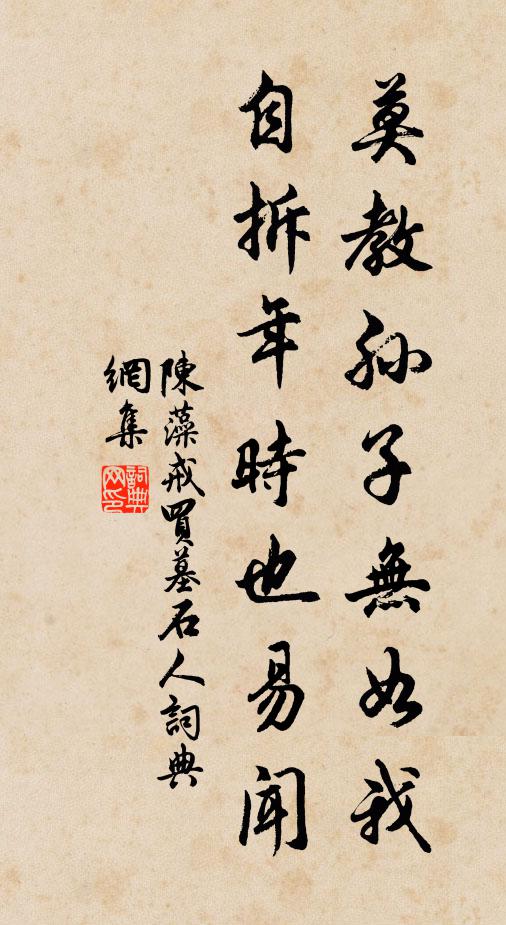 莫教孫子無如我
自拆年時也易聞
陳藻戒買墓石人詞典
網集
詞典
网印